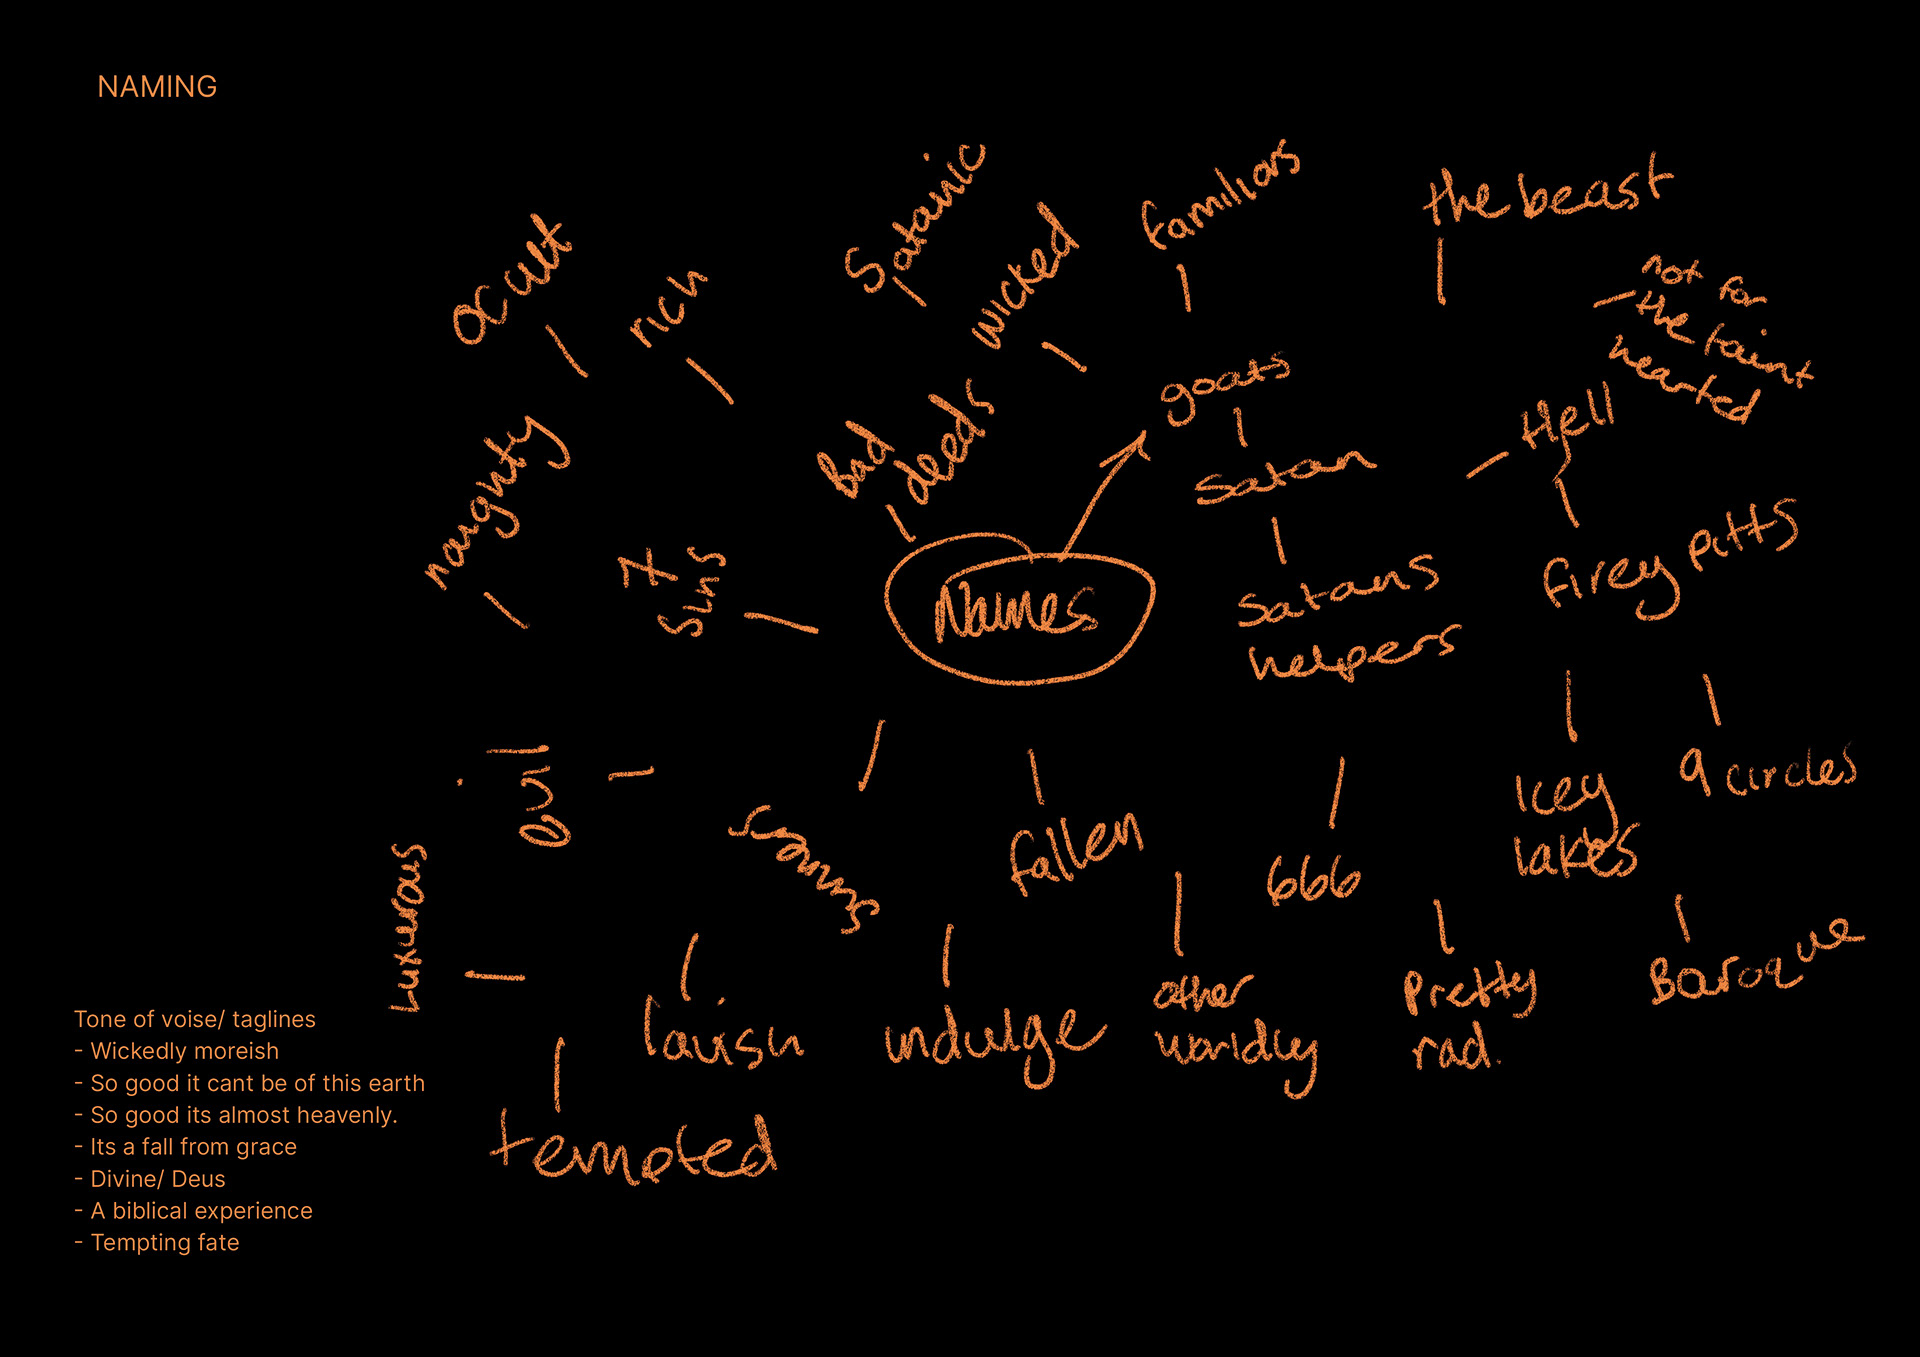 NAMING
Satanic
familiars
the beast
occult
rich
wicked
not for
the faint
hearted
goats
Hell
Bad
deeds
naughty
Satan
7
Sins
Names
Satans
helpers
firey pitts
evil
Icey
lakes
9 circles
fallen
666
Luxurous
lavish
indulge
other
worldly
Pretty
rad.
Baroque
tempted
Tone of voise/ taglines
- Wickedly moreish
- So good it cant be of this earth
- So good its almost heavenly.
- Its a fall from grace
- Divine/ Deus
- A biblical experience
- Tempting fate